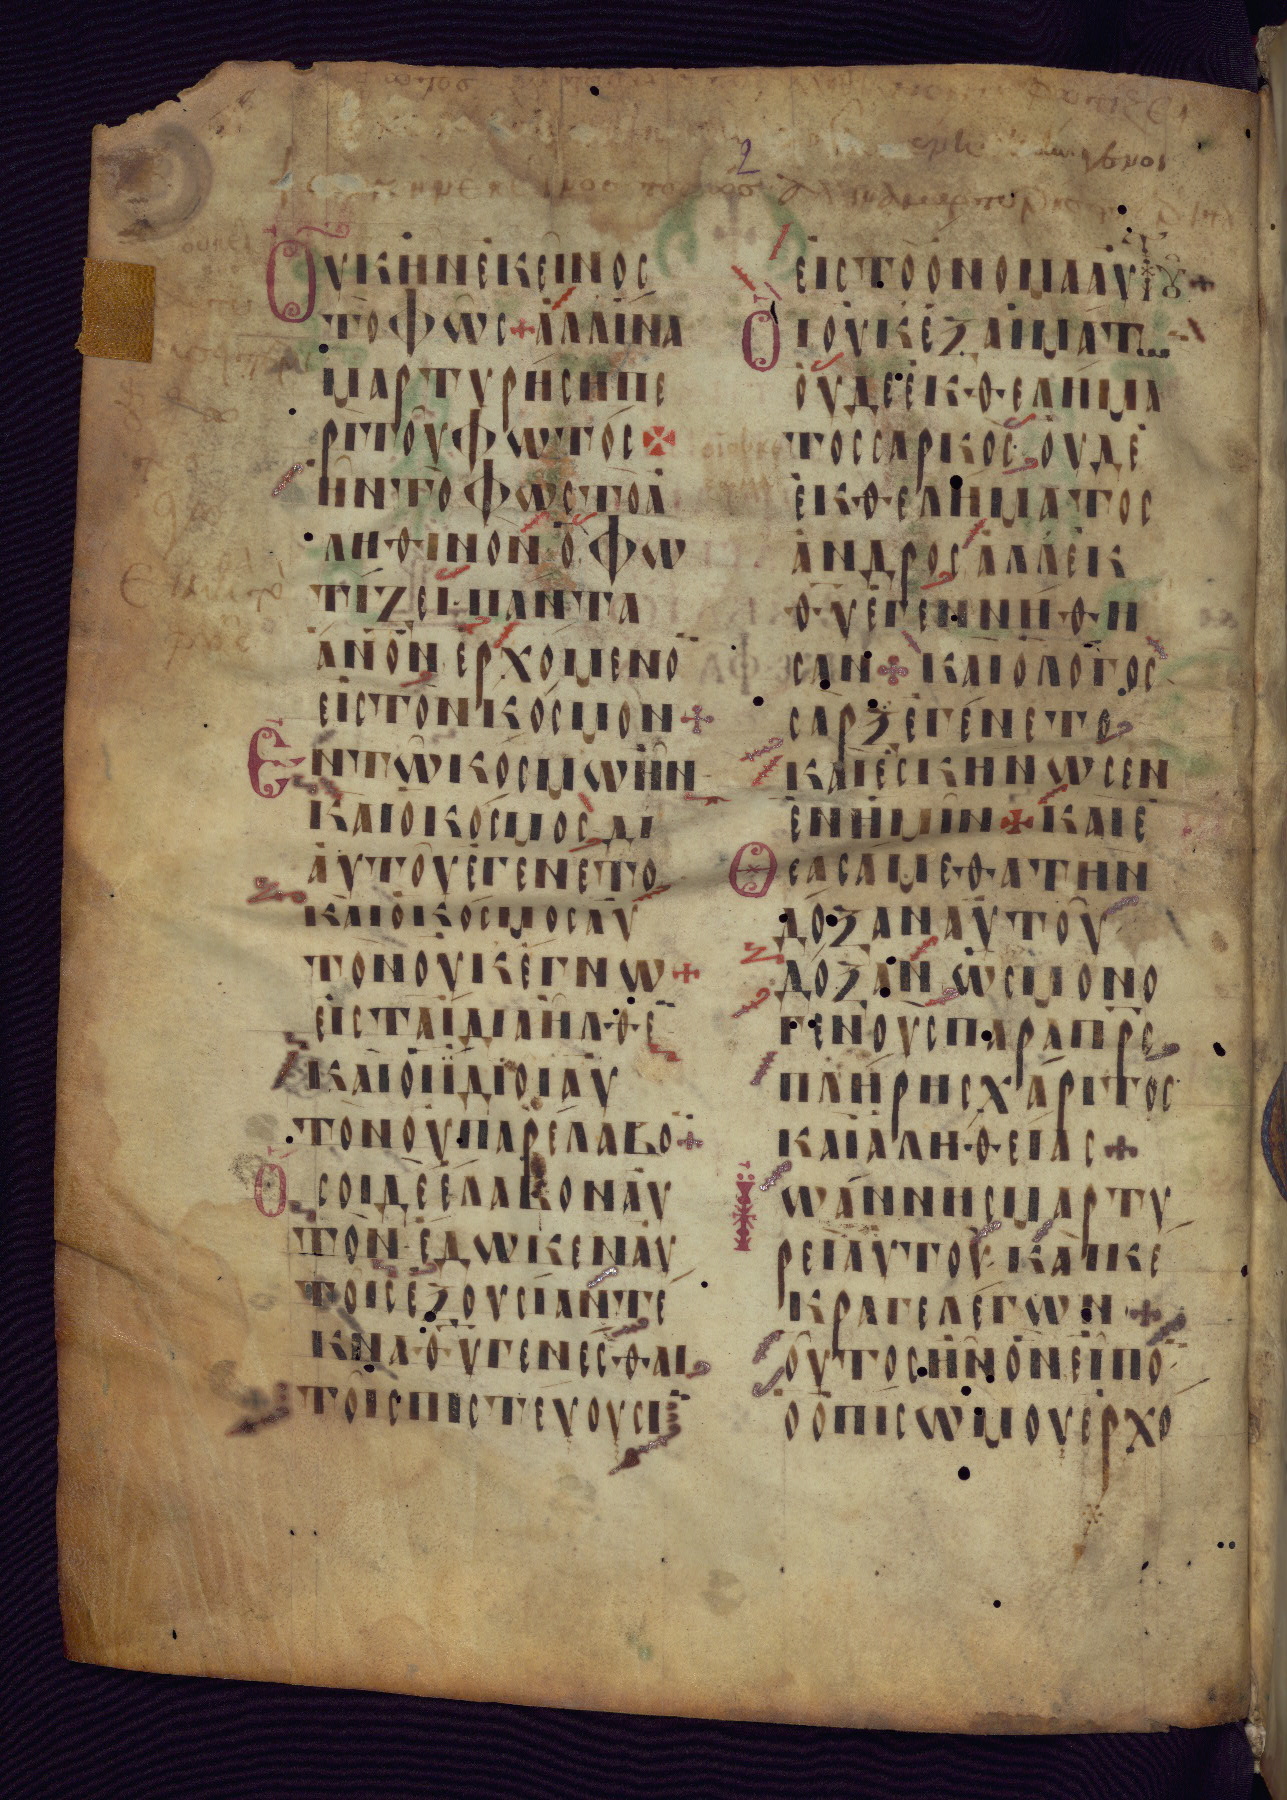 ΟΥΚΗΝΕΚΕΙΝΟC
ΤΟΦΩC+ΑΛΛΙΝΑ
ΜΑΡΤΥΡΗCΗΠΕ
ΡΙΤΟΥΦΩΤΟC+
ΗΝΤΟΦΩCΤΟΑ
ΛΗΘΙΝΟΝ·ΟΦΩ
ΤΙΖΕΙ·ΠΑΝΤΑ
ΑΝΟΝ·ΕΡΧΟΜΕΝΟ
ΕΙCΤΟΝΚΟCΜΟΝ+
ΕΝΤΩΚΟCΜΩΗΝ
ΚΑΙΟΚΟCΜΟC·ΔΙ
ΑΥΤΟΥΕΓΕΝΕΤΟ
ΚΑΙΟΚΟCΜΟCΑΥ
ΤΟΝΟΥΚΕΓΝΩ+
ΕΙCΤΑΙΔΙΑΗΛΘΕ
ΚΑΙΟΙΙΔΙΟΙΑΥ
ΤΟΝΟΥΠΑΡΕΛΑΒΟ+
ΟCΟΙΔΕΕΛΑΒΟΝΑΥ
ΤΟΝ·ΕΔΩΚΕΝΑΥ
ΤΟΙCΕΞΟΥCΙΑΝΤΕ
ΚΝΑΘΥΓΕΝΕCΘΑΙ
ΤΟΙCΠΙCΤΕΥΟΥCΙ
ΕΙCΤΟΟΝΟΜΑΑΥΤΟΥ+
ΟΙΟΥΚΕΞΑΙΜΑΤ
ΟΥΔΕΕΚΘΕΛΗΜΑ
ΤΟCCΑΡΚΟC·ΟΥΔΕ
ΕΚΘΕΛΗΜΑΤΟC
ΑΝΔΡΟCΑΛΛΕΚ
ΘΥΕΓΕΝΝΗΘΗ
CΑΝ+ΚΑΙΟΛΟΓΟC
CΑΡΞΕΓΕΝΕΤΟ
ΚΑΙΕCΚΗΝΩCΕΝ
ΕΝΗΜΙΝ+ΚΑΙΕ
ΘΕΑCΑΜΕΘΑΤΗΝ
ΔΟΞΑΝΑΥΤΟΥ
ΔΟΞΑΝΩCΜΟΝΟ
ΓΕΝΟΥCΠΑΡΑΠΡC
ΠΛΗΡΗCΧΑΡΙΤΟC
ΚΑΙΑΛΗΘΕΙΑC+
ΙΩΑΝΝΗCΜΑΡΤΥ
ΡΕΙΑΥΤΟΥ·ΚΑΙΚΕ
ΚΡΑΓΕΛΕΓΩΝ+
ΟΥΤΟCΗΝΟΝΕΙΠΟ
ΟΟΠΙCΩΜΟΥΕΡΧΟ